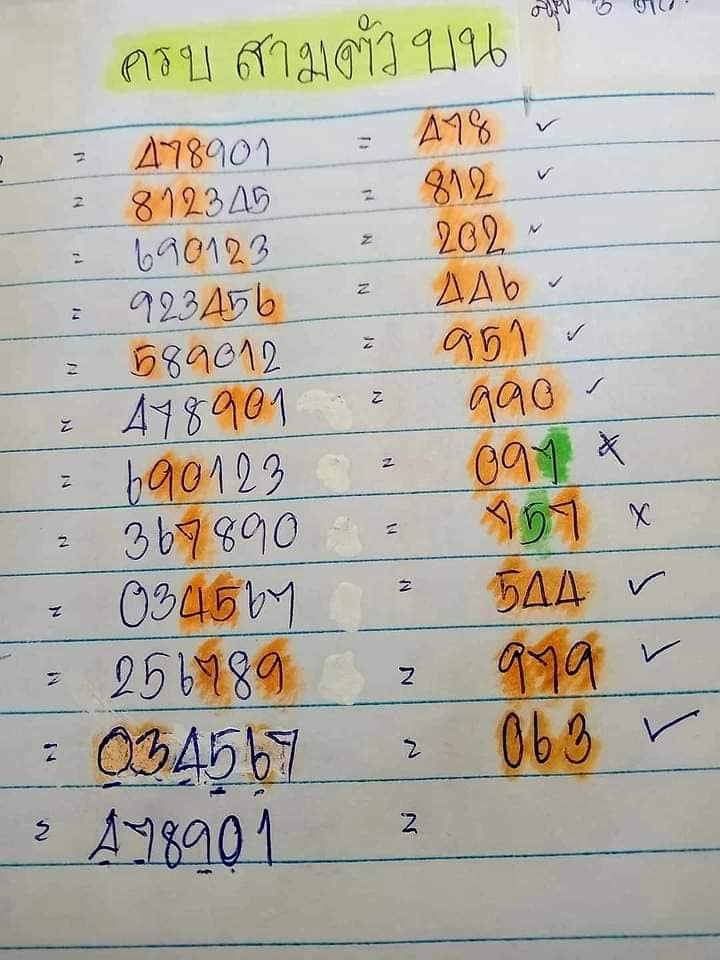 ครบ สามตัว บน
= 478901 = 478 ✓
= 812345 = 812 ✓
= 690123 = 202 ✓
= 923456 = 446 ✓
= 589012 = 951 ✓
= 478901 = 990 ✓
= 690123 = 097 ×
= 367890 = 757 ×
= 034567 = 544 ✓
= 256789 = 979 ✓
= 034567 = 063 ✓
= 478901 =